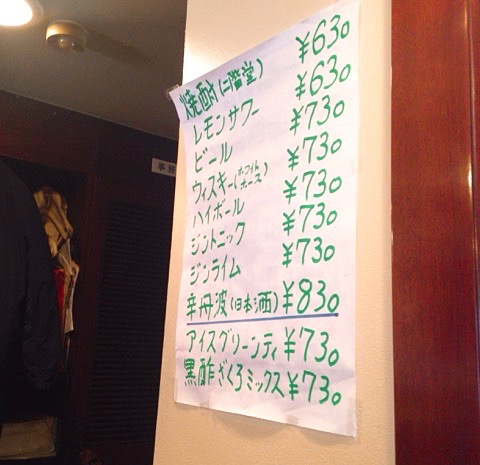 焼酎(二階堂) ¥630
レモンサワー ¥630
ビール ¥730
ウィスキー(ホワイトホース) ¥730
ハイボール ¥730
ジントニック ¥730
ジンライム ¥730
辛丹波(日本酒) ¥830
アイスグリーンティ ¥730
黒酢ざくろミックス ¥730